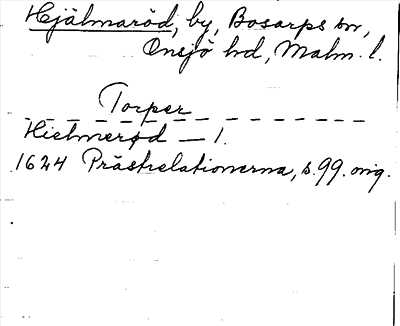 Hjälmaröd, by, Bosarps sn,
Onsjö hd, Malm. l.
Torper
Hielmerød — 1.
1624 Prästrelationerna, s. 99. orig.